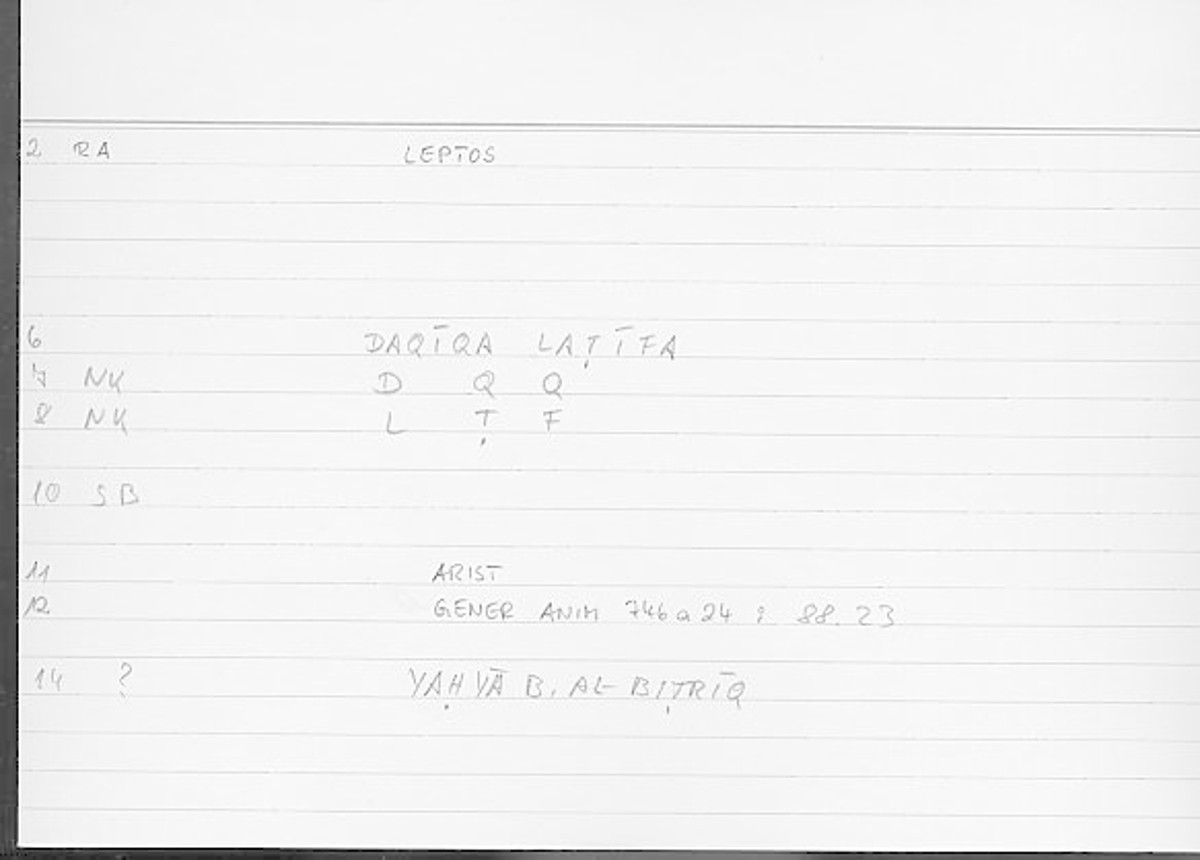 2 RA LEPTOS
6 DAQĪQA LAṬĪFA
7 NK D Q Q
8 NK L Ṭ F
10 SB
11 ARIST
12 GENER ANIM 746a24 ; 88.23
14 ? YAḤYĀ B. AL-BIṬRĪQ